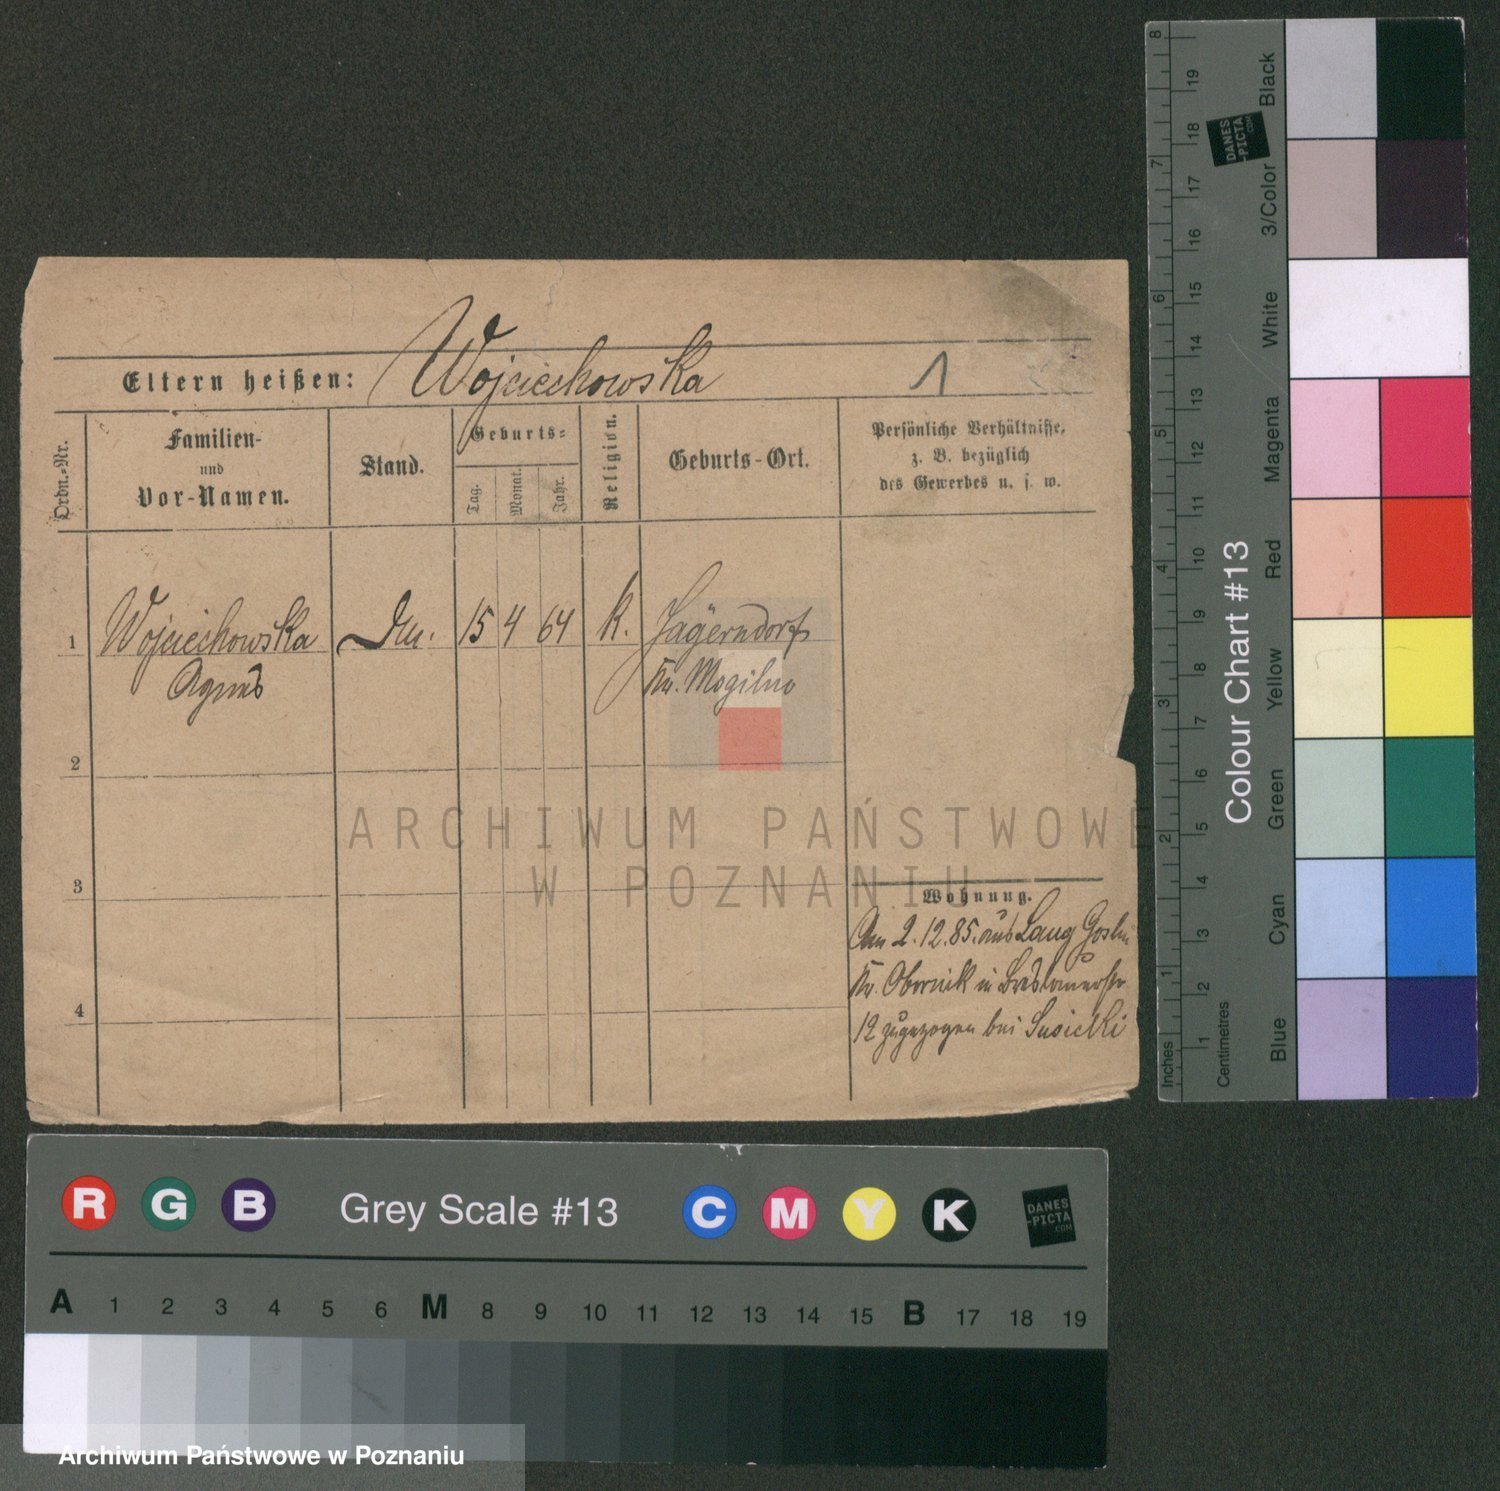 Eltern heißen: Wojciechowska 1
Ordn.-Nr.
Familien-
und
Vor-Namen.
Stand.
Geburts-
Tag.
Monat.
Jahr.
Religion.
Geburts-Ort.
Persönliche Verhältnisse,
z. B. bezüglich
des Gewerbes u. s. w.
1 Wojciechowska 15 4 64 k. Jägerndorf
Agnes Kr. Mogilno
2
3
4
Wohnung.
Am 2.12.85. aus Lang Goslin
Kr. Obornik in Breslauerstr
12 zugezogen bei Susicki
ARCHIWUM PAŃSTWOWE
W POZNANIU
Inches
Centimetres
8 7 6 5 4 3 2 1
19 18 17 16 15 14 13 12 11 10 9 8 7 6 5 4 3 2 1
Colour Chart #13
Black
3/Color
White
Magenta
Red
Yellow
Green
Cyan
Blue
DANES
-PICTA
.COM
R G B Grey Scale #13 C M Y K
DANES
-PICTA
.COM
A 1 2 3 4 5 6 M 8 9 10 11 12 13 14 15 B 17 18 19
Archiwum Państwowe w Poznaniu